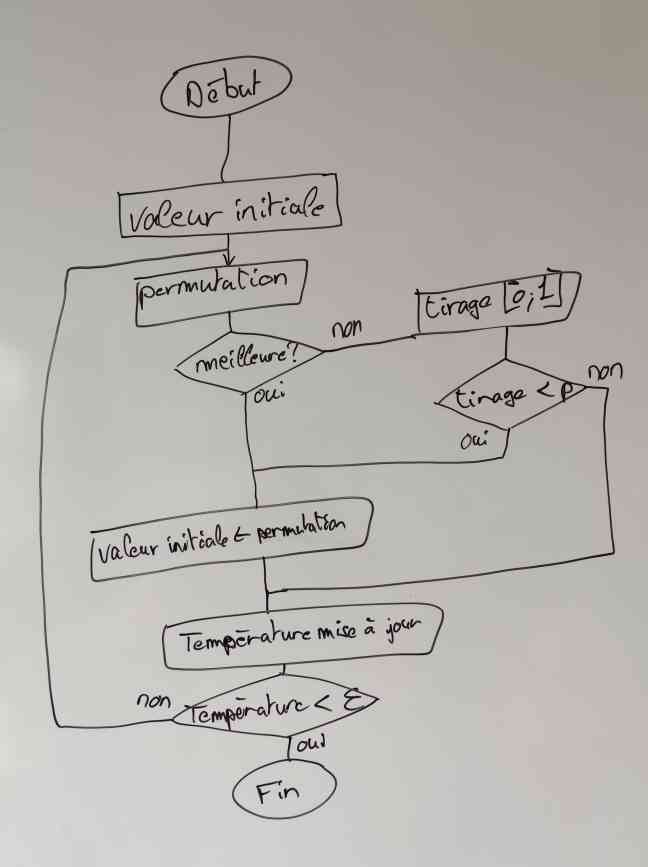 Début
valeur initiale
permutation
tirage [0;1]
non
meilleure?
non
tirage < p
oui
oui
valeur initiale ← permutation
Température mise à jour
non
Température < ε
oui
Fin